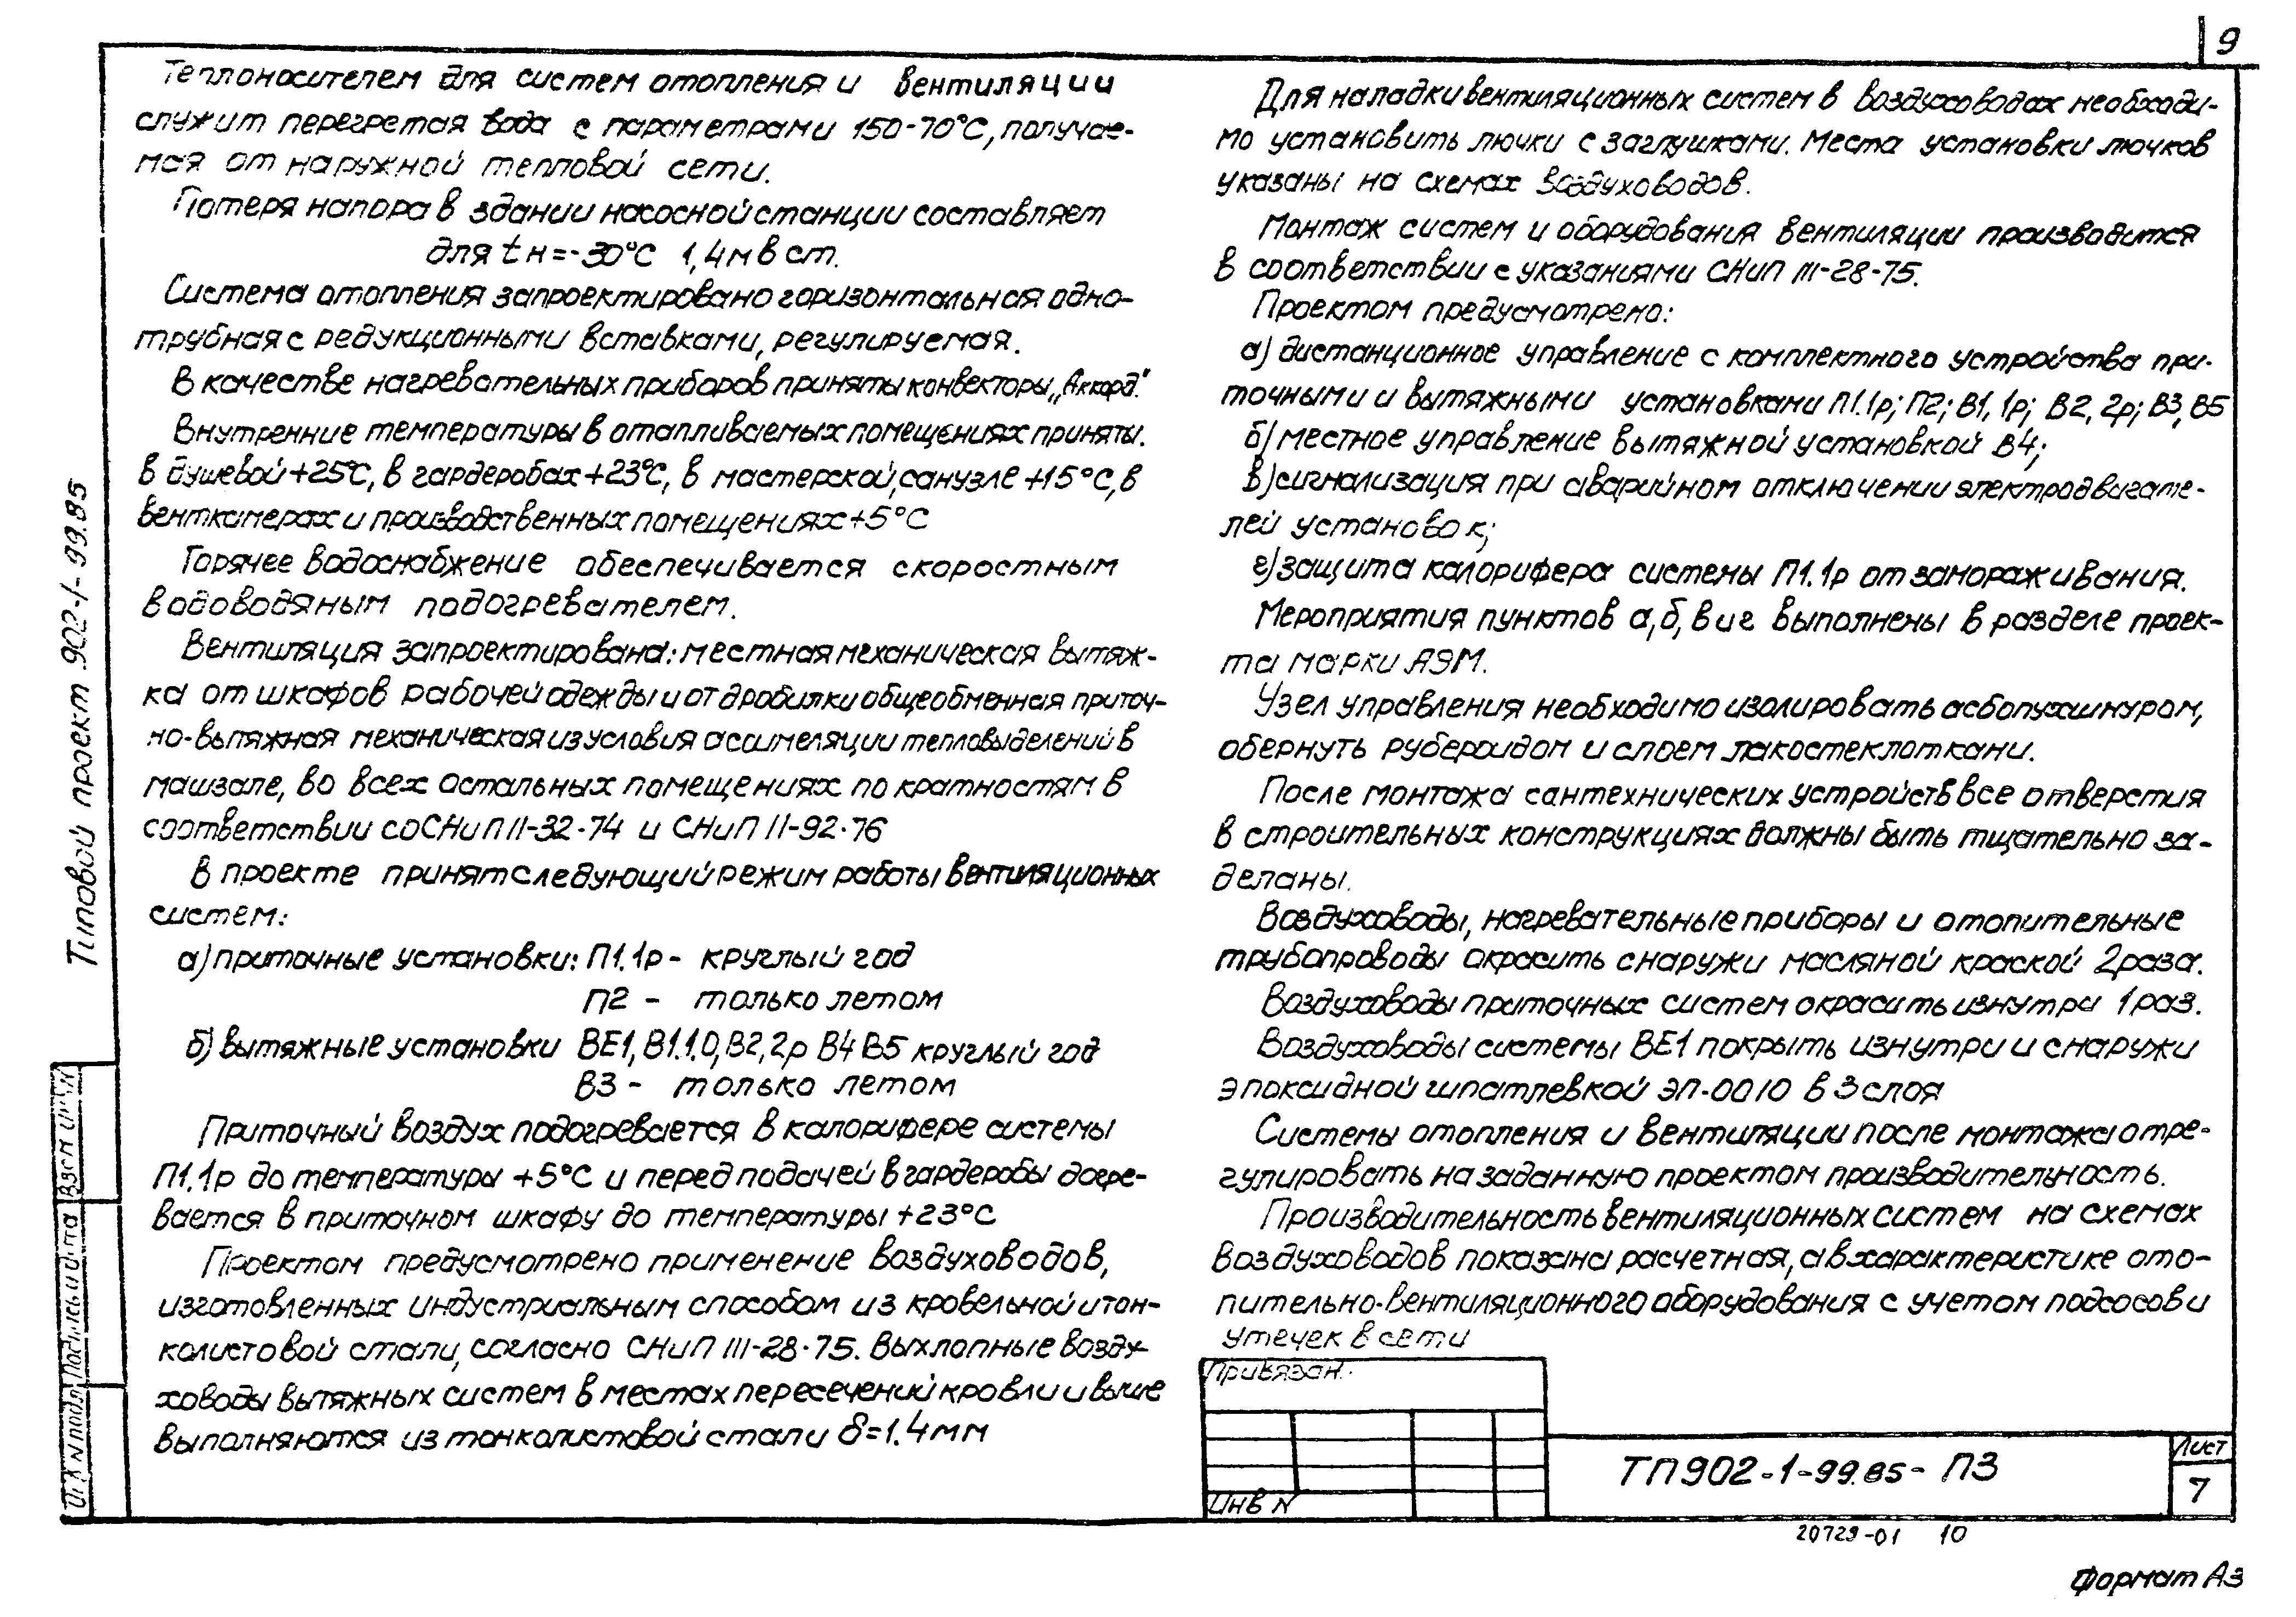 9
Теплоносителем для систем отопления и вентиляции
служит перегретая вода с параметрами 150-70°С, получае-
мая от наружной тепловой сети.
Потеря напора в здании насосной станции составляет
для tн=-30°С 1,4м в ст.
Система отопления запроектировано горизонтальная одно-
трубная с редукционными вставками, регулируемая.
В качестве нагревательных приборов приняты конвекторы „Аккорд."
Внутренние температуры в отапливаемых помещениях приняты.
в душевой +25°С, в гардеробах +23°С, в мастерской, санузле +15°С, в
венткамерах и производственных помещениях +5°С
Горячее водоснабжение обеспечивается скоростным
водоводяным подогревателем.
Вентиляция запроектирована: местная механическая вытяж-
ка от шкафов рабочей одежды и от дробилки общеобменная приточ-
но-вытяжная механическая из условия ассимеляции тепловыделений в
машзале, во всех остальных помещениях по кратностям в
соответствии со СНиП II-32-74 и СНиП II-92-76
В проекте принят следующий режим работы вентиляционных
систем:
а) приточные установки: П1.1р - круглый год
П2 - только летом
б) вытяжные установки ВЕ1, В1.1.0, В2, 2р В4 В5 круглый год
В3 - только летом
Приточный воздух подогревается в калорифере системы
П1.1р до температуры +5°С и перед подачей в гардеробы догре-
вается в приточном шкафу до температуры +23°С
Проектом предусмотрено применение воздуховодов,
изготовленных индустриальным способом из кровельной и тон-
колистовой стали, согласно СНиП III-28-75. Выхлопные возду-
ховоды вытяжных систем в местах пересечений кровли и выше
выполняются из тонколистовой стали δ=1.4мм
Для наладки вентиляционных систем в воздуховодах необходи-
мо установить лючки с заглушками. Места установки лючков
указаны на схемах воздуховодов.
Монтаж систем и оборудования вентиляции производится
в соответствии с указаниями СНиП III-28-75.
Проектом предусмотрено:
а) дистанционное управление с комплектного устройства при-
точными и вытяжными установками П1.1р; П2; В1, 1р; В2, 2р; В3, В5
б) местное управление вытяжной установкой В4;
в) сигнализация при аварийном отключении электродвигате-
лей установок;
г) защита калорифера системы П1.1р от замораживания.
Мероприятия пунктов а, б, в и г выполнены в разделе проек-
та марки АЭМ.
Узел управления необходимо изолировать асбопухшнуром,
обернуть рубероидом и слоем лакостеклоткани.
После монтажа сантехнических устройств все отверстия
в строительных конструкциях должны быть тщательно за-
деланы.
Воздуховоды, нагревательные приборы и отопительные
трубопроводы окрасить снаружи масляной краской 2раза.
Воздуховоды приточных систем окрасить изнутри 1раз.
Воздуховоды системы ВЕ1 покрыть изнутри и снаружи
эпоксидной шпатлевкой ЭП-0010 в 3 слоя
Системы отопления и вентиляции после монтажа отре-
гулировать на заданную проектом производительность.
Производительность вентиляционных систем на схемах
воздуховодов показана расчетная, а в характеристике ото-
пительно-вентиляционного оборудования с учетом подсосов и
утечек в сети
Привязан.
Инв N
ТП902-1-99.85- ПЗ
Лист
7
20729-01 10
Формат А3
Типовой проект 902-1-99.85
Взам инв N
Подпись и дата
Инв N подл